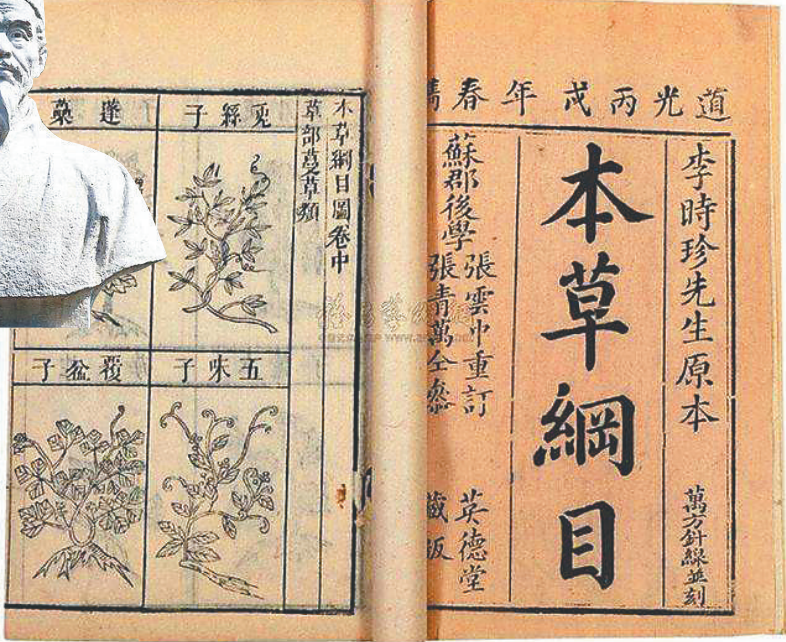 道光丙戌年春鐫
李時珍先生原本
萬方針線並刻
本草綱目
蘇郡後學
張雲中重訂
張青萬仝參
英德堂
藏版
本草綱目圖卷中
草部蔓草類
兎絲子
蓬蔂
五味子
覆盆子